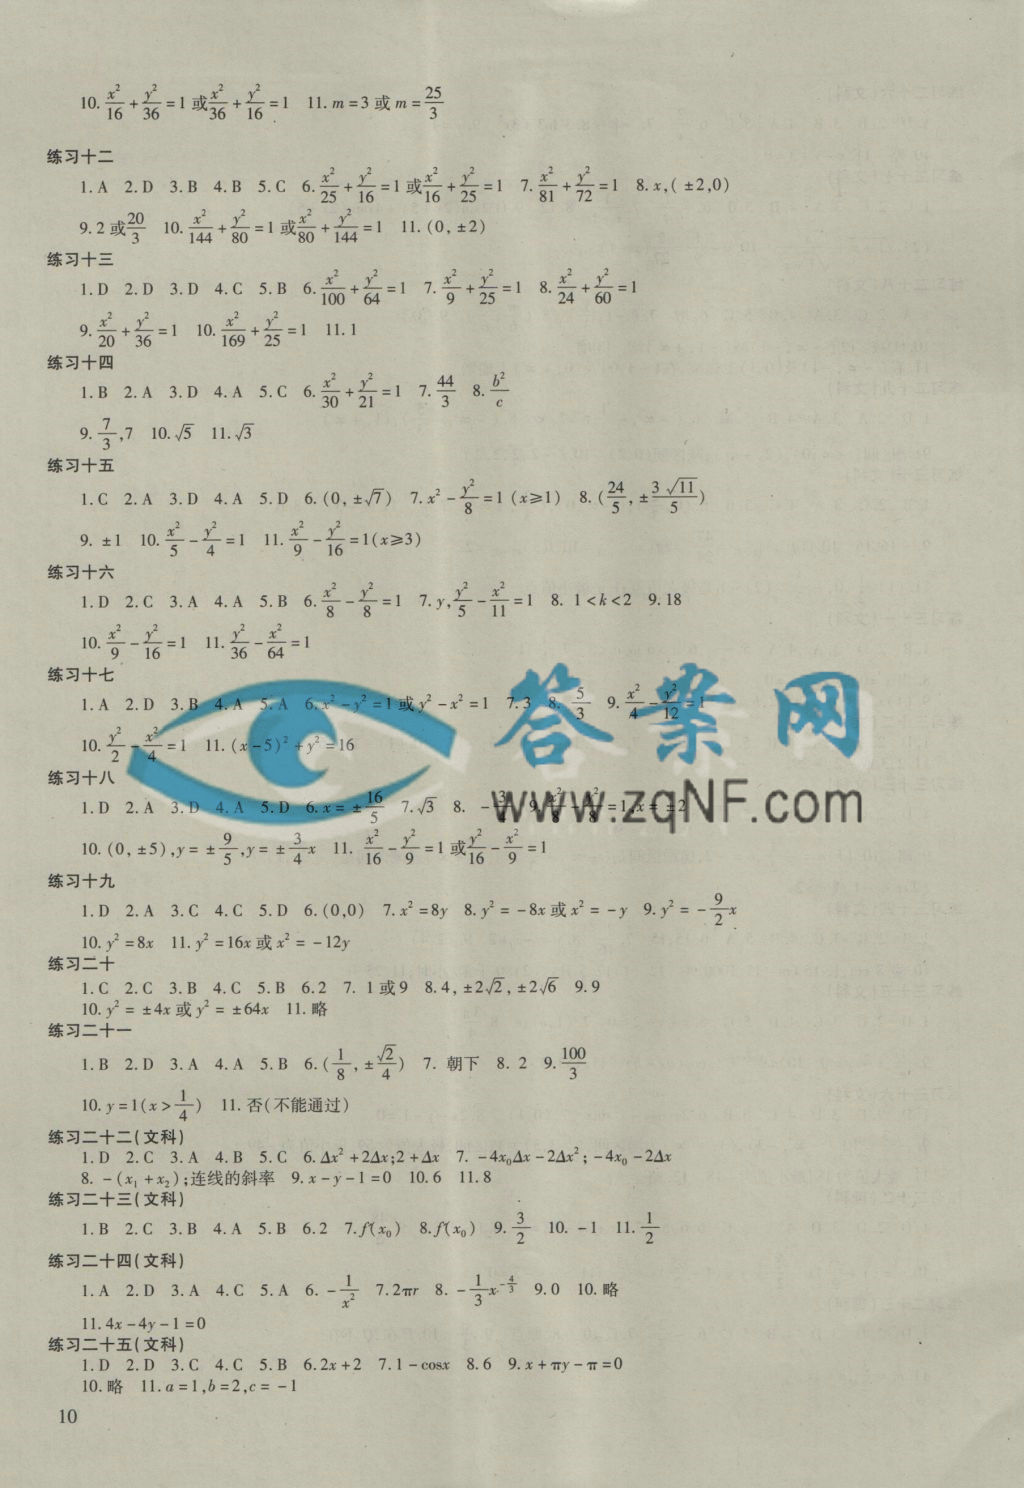 10. x²/16 + y²/36 = 1 或 x²/36 + y²/16 = 1  11. m = 3 或 m = 25/3
练习十二
1. A  2. D  3. B  4. B  5. C  6. x²/25 + y²/16 = 1 或 x²/16 + y²/25 = 1  7. x²/81 + y²/72 = 1  8. x, ( ±2,0)
9. 2 或 20/3  10. x²/144 + y²/80 = 1 或 x²/80 + y²/144 = 1  11. (0, ±2)
练习十三
1. D  2. D  3. D  4. C  5. B  6. x²/100 + y²/64 = 1  7. x²/9 + y²/25 = 1  8. x²/24 + y²/60 = 1
9. x²/20 + y²/36 = 1  10. x²/169 + y²/25 = 1  11. 1
练习十四
1. B  2. A  3. D  4. A  5. C  6. x²/30 + y²/21 = 1  7. 44/3  8. b²/c
9. 7/3, 7  10. √5  11. √3
练习十五
1. C  2. A  3. D  4. A  5. D  6. (0, ±√7)  7. x² - y²/8 = 1 (x≥1)  8. (24/5, ±3√11/5)
9. ±1  10. x²/5 - y²/4 = 1  11. x²/9 - y²/16 = 1(x≥3)
练习十六
1. D  2. C  3. A  4. A  5. B  6. x²/8 - y²/8 = 1  7. y, y²/5 - x²/11 = 1  8. 1<k<2  9. 18
10. x²/9 - y²/16 = 1  11. y²/36 - x²/64 = 1
练习十七
1. A  2. D  3. B  4. A  5. A  6. x² - y² = 1 或 y² - x² = 1  7. 3  8. 5/3  9. x²/4 - y²/12 = 1
10. y²/2 - x²/4 = 1  11. (x-5)² + y² = 16
答案网
www.zqNF.com
练习十八
1. D  2. A  3. D  4. A  5. D  6. x = ±16/5  7. √3  8. -3/4  9. x²/8 - y²/8 = 1, x = ±2
10. (0, ±5), y = ±9/5, y = ±3/4 x  11. x²/16 - y²/9 = 1 或 y²/16 - x²/9 = 1
练习十九
1. D  2. A  3. C  4. C  5. D  6. (0,0)  7. x² = 8y  8. y² = -8x 或 x² = -y  9. y² = -9/2 x
10. y² = 8x  11. y² = 16x 或 x² = -12y
练习二十
1. C  2. C  3. B  4. C  5. B  6. 2  7. 1 或 9  8. 4, ±2√2, ±2√6  9. 9
10. y² = ±4x 或 y² = ±64x  11. 略
练习二十一
1. B  2. D  3. A  4. A  5. B  6. (1/8, ±√2/4)  7. 朝下  8. 2  9. 100/3
10. y = 1(x > 1/4)  11. 否(不能通过)
练习二十二(文科)
1. D  2. C  3. A  4. B  5. C  6. Δx² + 2Δx; 2 + Δx  7. -4x₀Δx - 2Δx²; -4x₀ - 2Δx
8. -(x₁ + x₂); 连线的斜率  9. x - y - 1 = 0  10. 6  11. 8
练习二十三(文科)
1. B  2. C  3. B  4. A  5. B  6. 2  7. f′(x₀)  8. f′(x₀)  9. 3/2  10. -1  11. 1/2
练习二十四(文科)
1. A  2. D  3. A  4. C  5. A  6. -1/x²  7. 2πr  8. -1/3 x^(-4/3)  9. 0  10. 略
11. 4x - 4y - 1 = 0
练习二十五(文科)
1. D  2. D  3. C  4. C  5. B  6. 2x + 2  7. 1 - cosx  8. 6  9. x + πy - π = 0
10. 略  11. a = 1, b = 2, c = -1
10